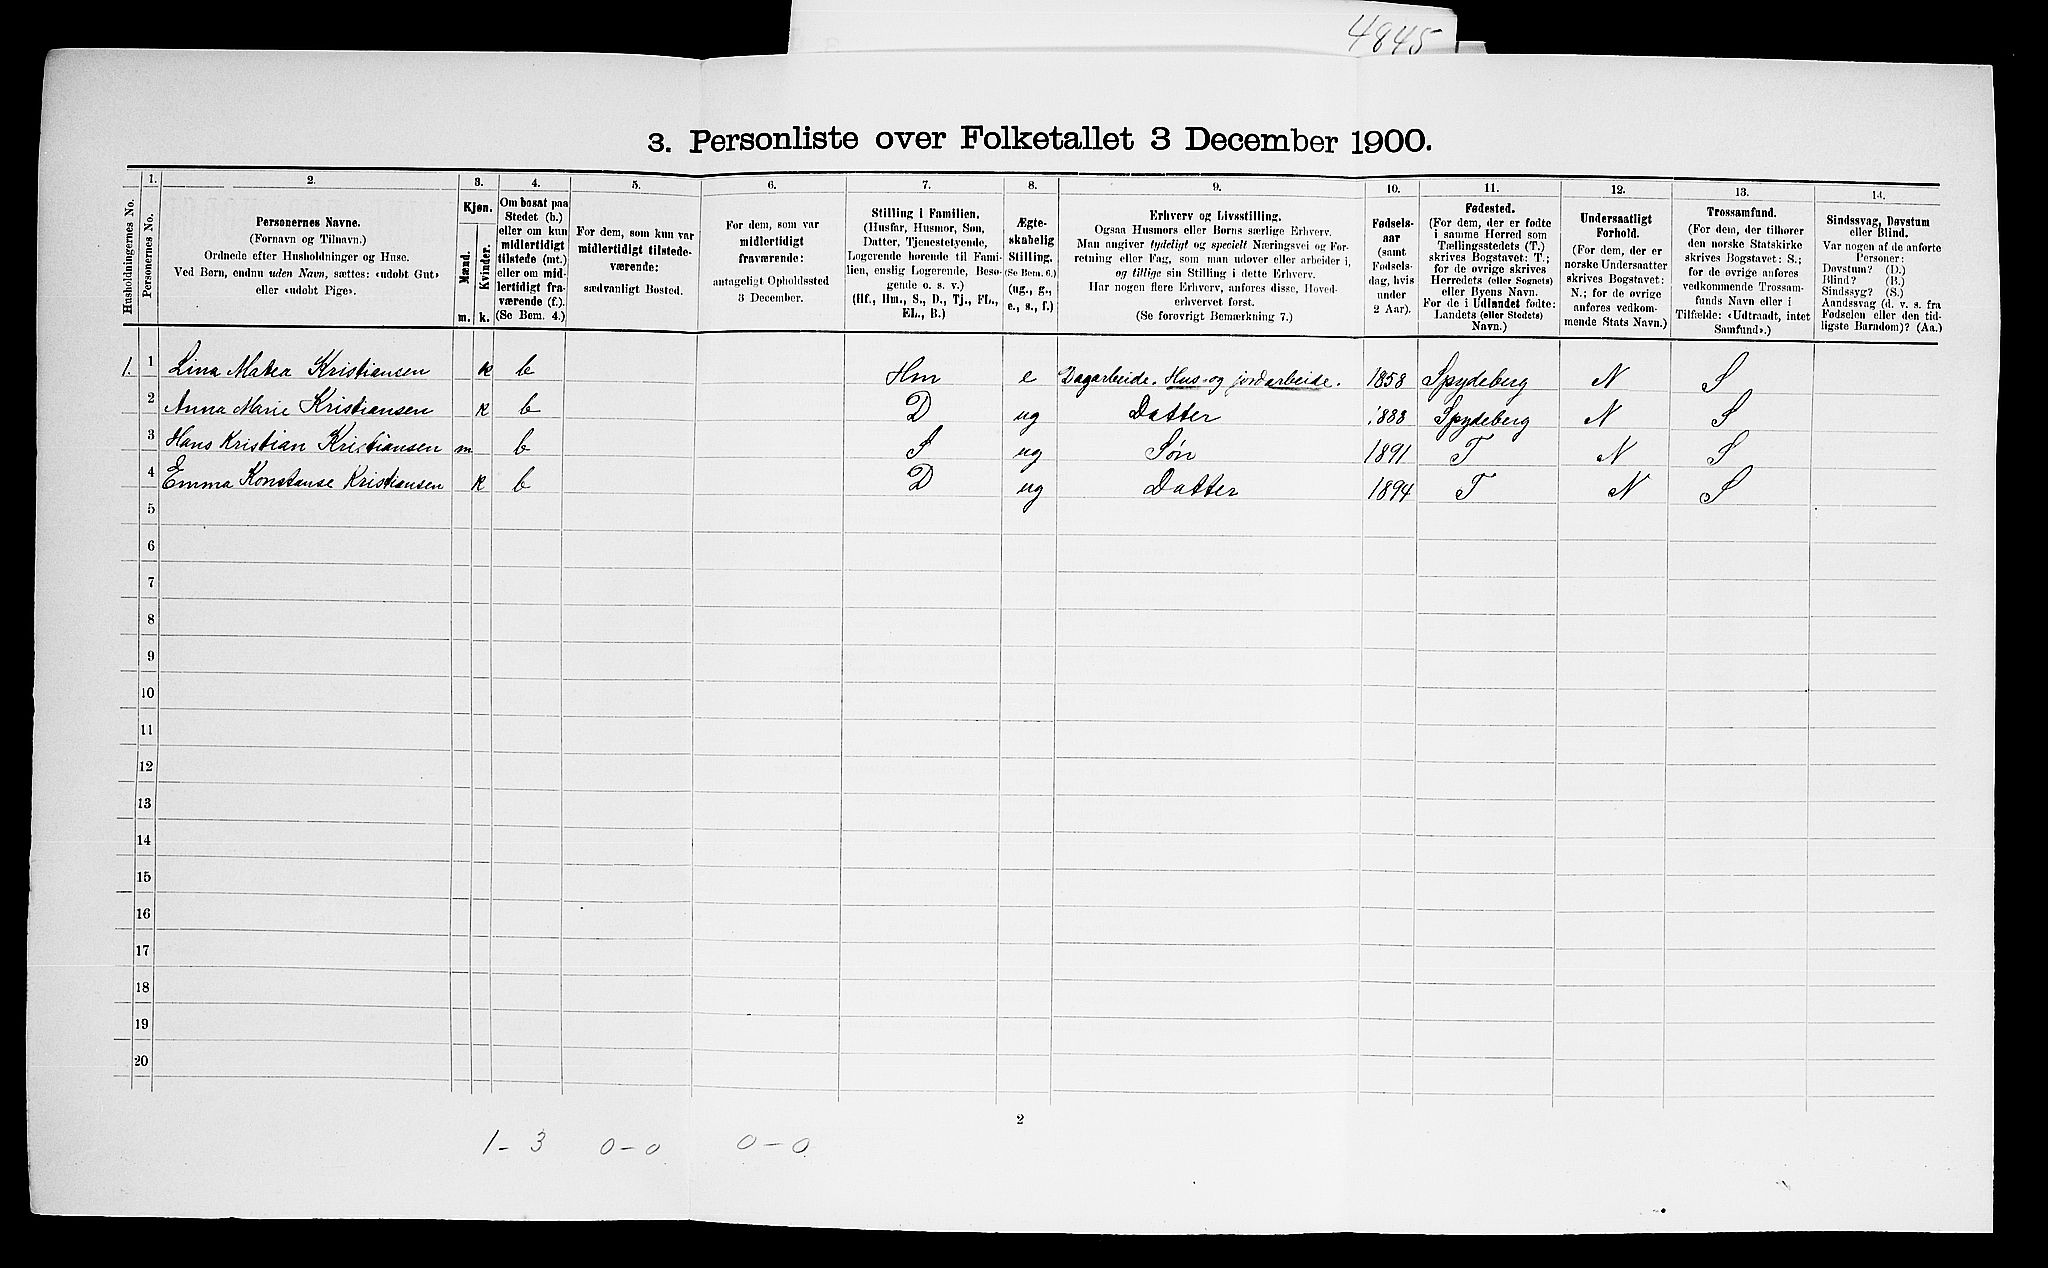 4845
3. Personliste over Folketallet 3 December 1900.
Husholdningernes No.
1.
Personernes No.
2.
Personernes Navne.
(Fornavn og Tilnavn.)
Ordnede efter Husholdninger og Huse.
Ved Børn, endnu uden Navn, sættes: «udøbt Gut»
eller «udøbt Pige».
3.
Kjøn.
Mænd.
Kvinder.
m. k.
4.
Om bosat paa
Stedet (b.)
eller om kun
midlertidigt
tilstede (mt.)
eller om mid-
lertidigt fra-
værende (f.).
(Se Bem. 4.)
5.
For dem, som kun var
midlertidigt tilstede-
værende:
sædvanligt Bosted.
6.
For dem, som var
midlertidigt
fraværende:
antageligt Opholdssted
3 December.
7.
Stilling i Familien.
(Husfar, Husmor, Søn,
Datter, Tjenestetyende,
Logerende hørende til Fami-
lien, enslig Logerende, Besø-
gende o. s. v.)
(Hf., Hm., S., D., Tj., FL.,
EL., B.)
8.
Ægte-
skabelig
Stilling.
(Se Bem. 6.)
(ug., g.,
e., s., f.)
9.
Erhverv og Livsstilling.
Ogsaa Husmors eller Børns særlige Erhverv.
Man angiver tydeligt og specielt Næringsvei og For-
retning eller Fag, som man udøver eller arbeider i,
og tillige sin Stilling i dette Erhverv.
Har nogen flere Erhverv, anføres disse, Hoved-
erhvervet først.
(Se forøvrigt Bemærkning 7.)
10.
Fødsels-
aar
(samt
Fødsels-
dag, hvis
under
2 Aar).
11.
Fødested.
(For dem, der er fødte
i samme Herred som
Tællingsstedets (T.)
skrives Bogstavet: T.;
for de øvrige skrives
Herredets (eller Sognets)
eller Byens Navn.
For de i Udlandet fødte:
Landets (eller Stedets)
Navn.)
12.
Undersaatligt
Forhold.
(For dem, der er
norske Undersaatter
skrives Bogstavet:
N.; for de øvrige
anføres vedkom-
mende Stats Navn.)
13.
Trossamfund.
(For dem, der tilhører
den norske Statskirke
skrives Bogstavet: S.;
for de øvrige anføres
vedkommende Trossam-
funds Navn eller i
Tilfælde: «Udtraadt, intet
Samfund».)
14.
Sindssvag, Døvstum
eller Blind.
Var nogen af de anførte
Personer:
Døvstum? (D.)
Blind? (B.)
Sindssyg? (S.)
Aandssvag (d. v. s. fra
Fødselen eller den tid-
ligste Barndom)? (Aa.)
1. 1 Lina Matea Kristiansen k b Hm e Dagarbeide. Hus- og jordarbeide. 1858 Spydeberg N S
2 Anna Marie Kristiansen k b D ug Datter 1888 Spydeberg N S
3 Hans Kristian Kristiansen m b S ug Søn 1891 T N S
4 Emma Konstanse Kristiansen k b D ug Datter 1894 T N S
5
6
7
8
9
10
11
12
13
14
15
16
17
18
19
20
2
1-3 0-0 0-0